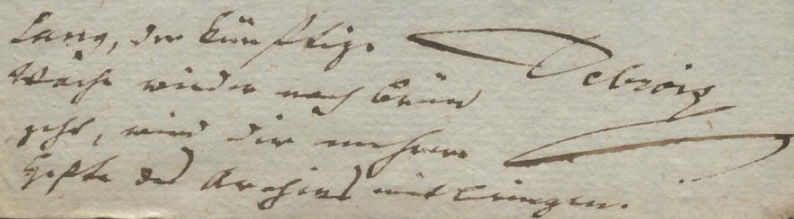 Lang, der künftige
Woche wieder nach Brünn
geht, wird dir mehrere
Hefte des Archivs mitbringen.